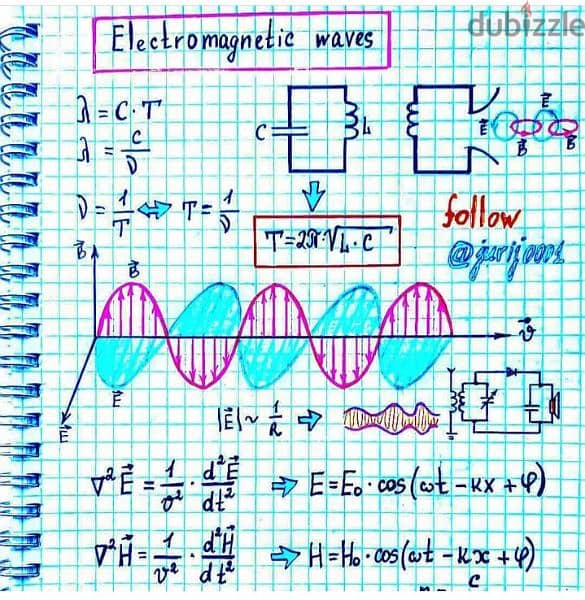 dubizzle
Electromagnetic waves
λ = C·T
λ = C/ν
ν = 1/T ⇔ T = 1/ν
C L
E⃗ E⃗
B⃗ B⃗
T=2π·√L·C
follow
@jurij0001
B⃗
B⃗
v⃗
E⃗
E⃗
|E⃗| ~ 1/R ⇒
∇²E⃗ = 1/v² · d²E⃗/dt² ⇒ E=E₀·cos(ωt-kx+φ)
∇²H⃗ = 1/v² · d²H⃗/dt² ⇒ H=H₀·cos(ωt-kx+φ)
c